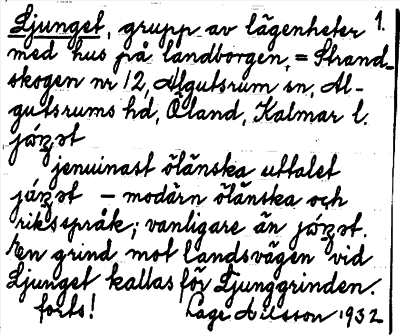 Ljunget, grupp av lägenheter 1.
med hus på landborgen, = Strand-
skogen nr 12, Algutsrum sn, Al-
gutsrums hd, Öland, Kalmar l.
jenuinast öländska uttalet
– modärn öländska och
riksspråk; vanligare än
En grind mot landsvägen vid
Ljunget kallas för Ljunggrinden.
forts! Lage Nilsson 1932